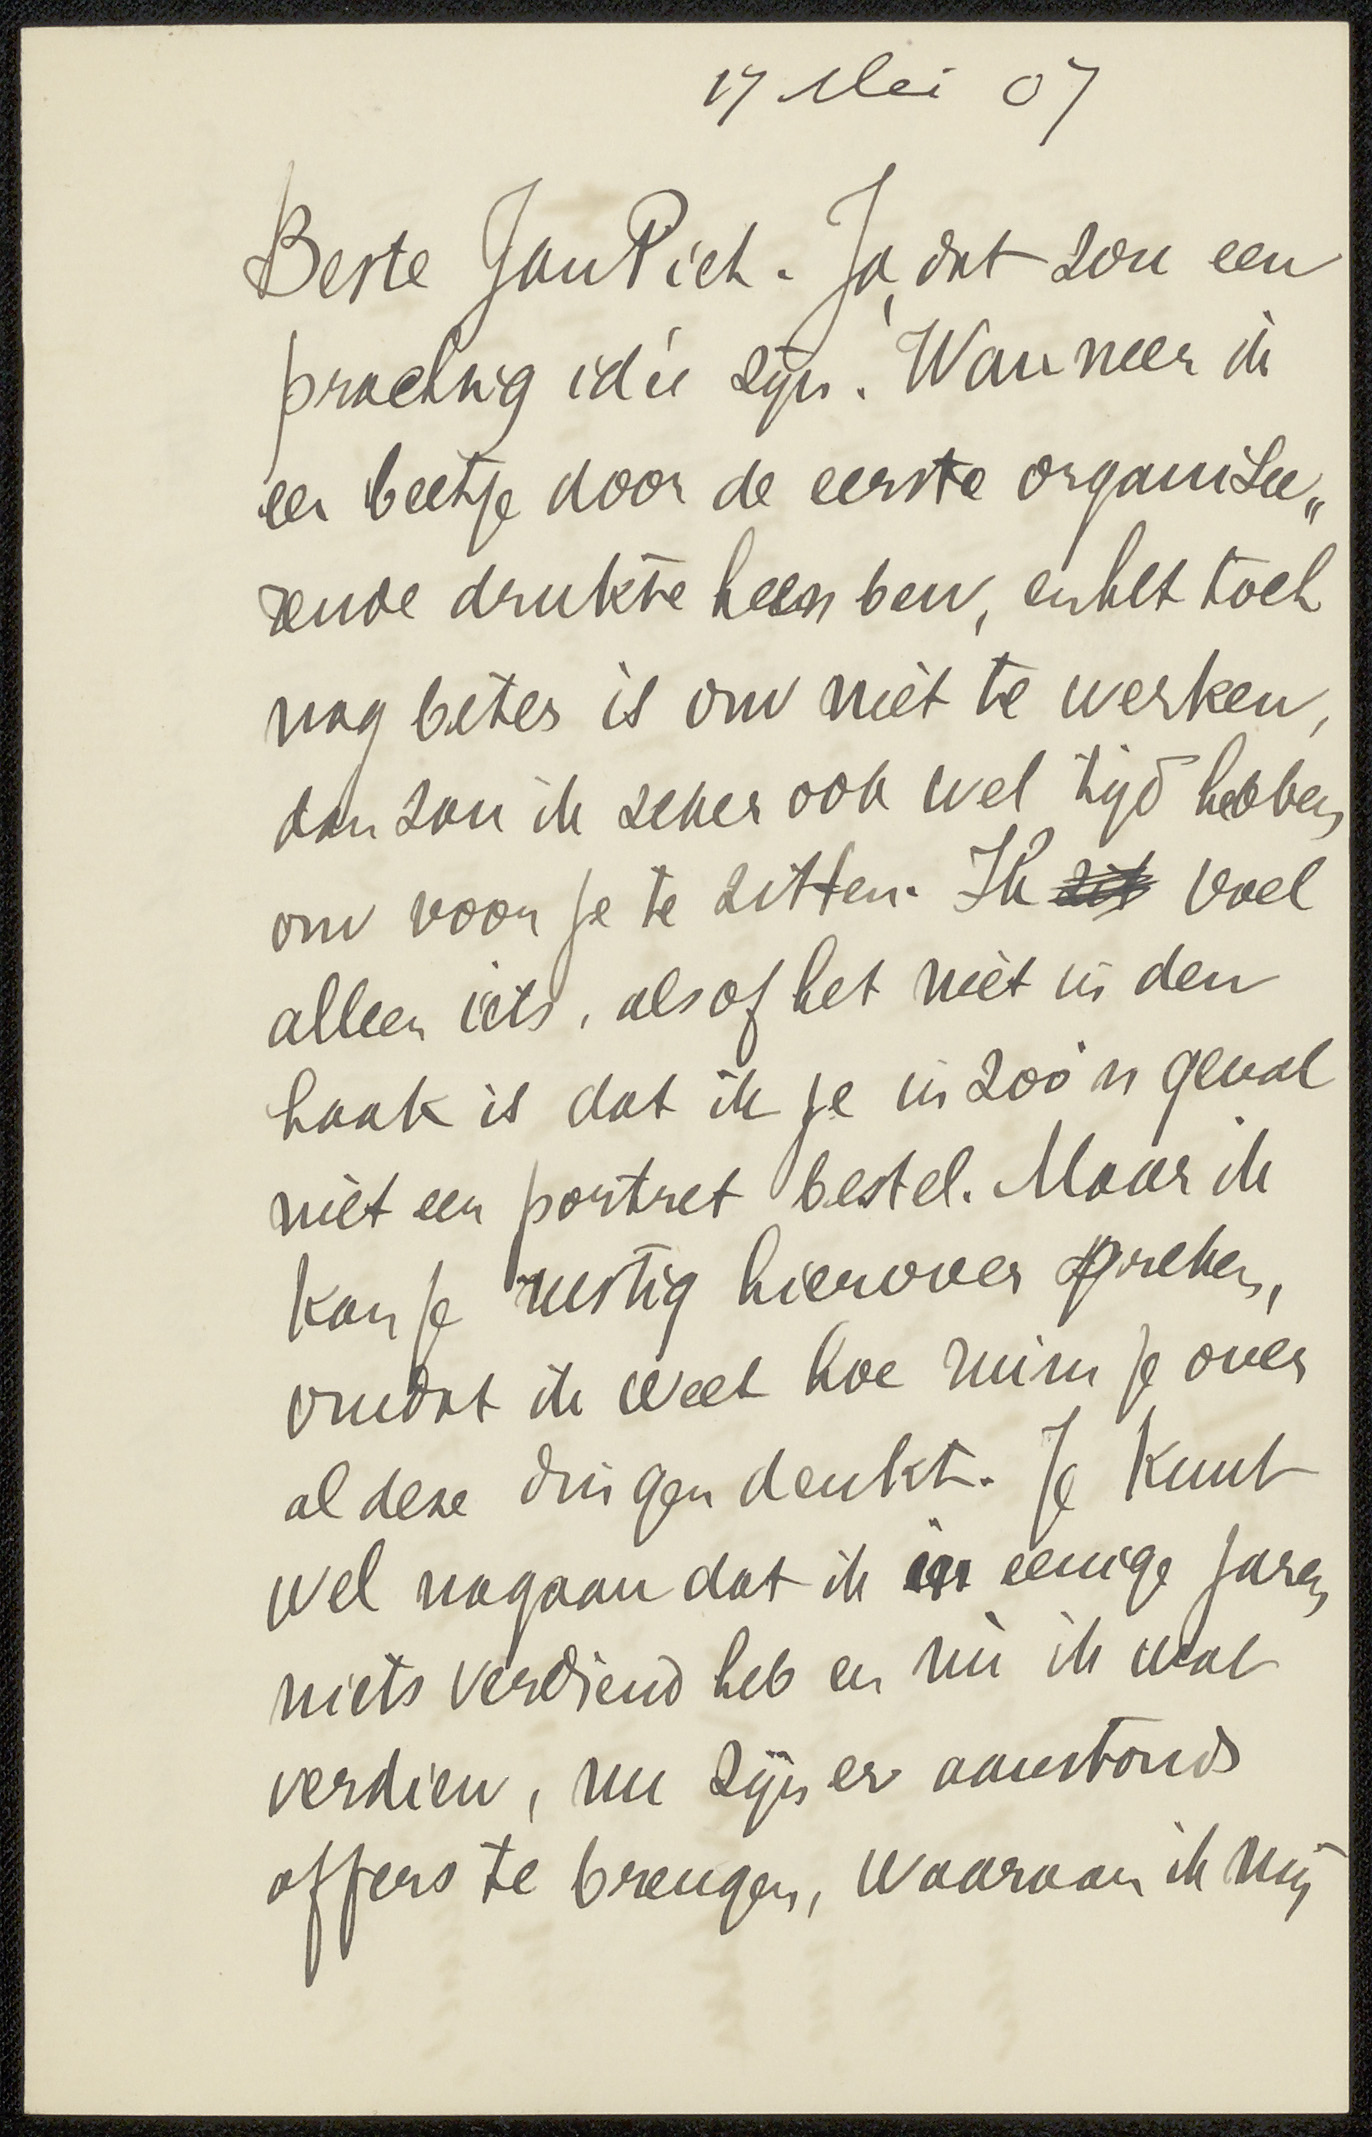 17 Mei 07
Beste Jan Piet. Ja, dat zou een
prachtig idée zijn. Wanneer ik
een beetje door de eerste organisee„
rende drukte heen ben, en het toch
nog beter is om niet te werken,
dan zou ik zeker ook wel tijd hebben
om voor je te zitten. Ik zit voel
alleen iets, alsof het niet in den
haak is dat ik je in zoo'n geval
niet een portret bestel. Maar ik
kan je rustig hierover spreken,
omdat ik weet hoe ruim je over
al deze dingen denkt. Je kunt
wel nagaan dat ik in eenige jaren
niets verdiend heb en nu ik wat
verdien, nu zijn er aanstonds
offers te brengen, waaraan ik mij